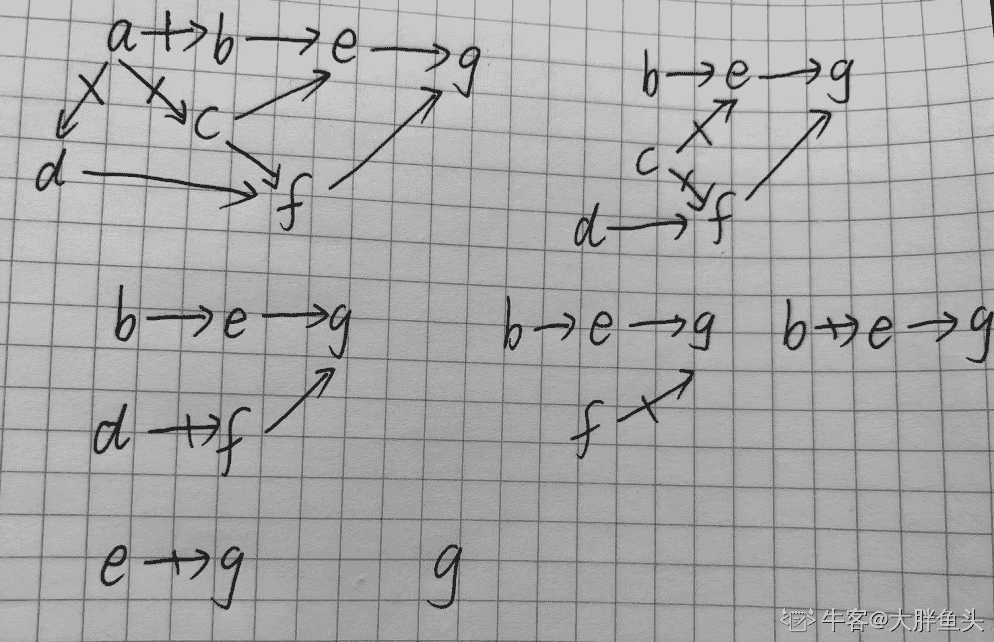 a → b → e → g
c
d
f
b → e → g
c
d → f
b → e → g
d → f
b → e → g
f
b → e → g
e → g
g
牛客@大胖鱼头